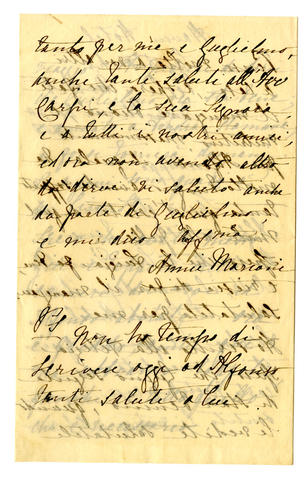 tanto per me, e Guglielmo,
anche tanti saluti all' Avv
Carpi, e la sua Signora,
e a tutti i nostri amici,
ed ora non avendo altro
da dirvi vi saluto anche
da parte di Guglielmo
e mi dico Affma
Annie Marconi
PS
Non ho tempo di
scrivere oggi ad Alfonso
tanti saluti a lui.